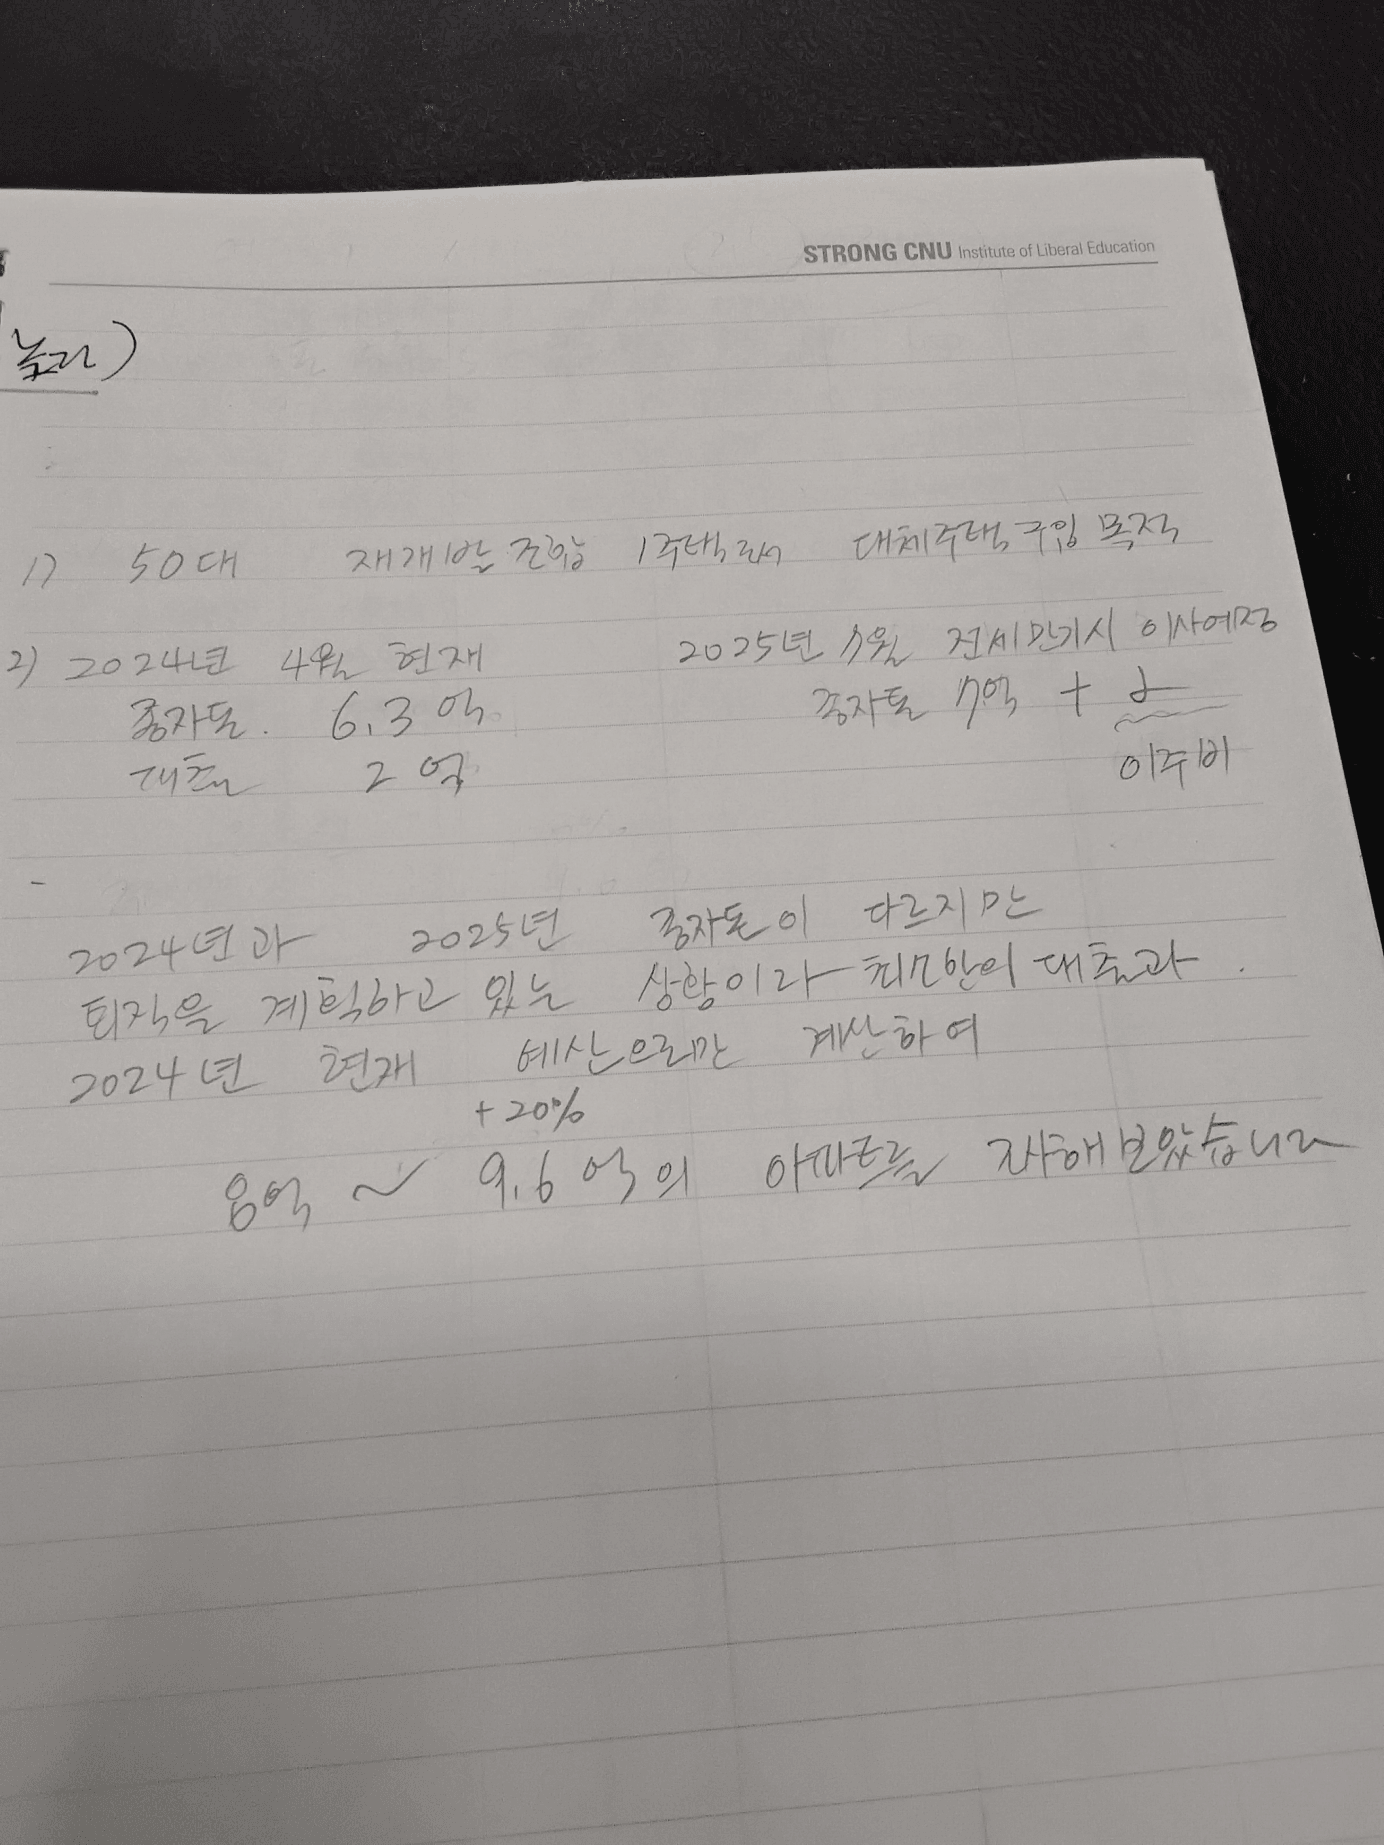 STRONG CNU Institute of Liberal Education
놓고)
1) 50대 재개발 조합 1주택로써 대체주택 구입 목적
2) 2024년 4월 현재 2025년 7월 전세만기시 이사예정
종자돈. 6.3억 종자돈 7억 + α
대출 2억 이주비
2024년과 2025년 종자돈이 다르지만
퇴직을 계획하고 있는 상황이라 최대한의 대출과.
2024년 현재 예산으로만 계산하여
+20%
8억 ~ 9.6억의 아파트를 조사해보았습니다